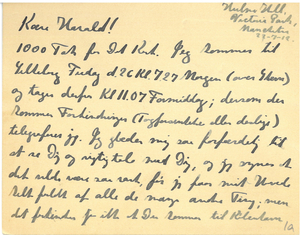 Hulme Hall,
Victoria Park,
Manchester
23-7-12
Kære Harald!
1000 Tak for Dit Kort. Jeg kommer til
Esbjerg Fredag d 26 Kl 7.27 Morgen (over
og tager derfra Kl 11.07 Formiddag; dersom der
kommer Forhindringer (Togforsinkelse eller deslige)
telegraferer jeg. Jeg glæder mig saa forfærdelig til
at se Dig og rigtig tale med Dig, og jeg synes at
det vilde være saa rart, for jeg faar nok Hovedet
helt fuldt af alle de mange andre Ting; men
det forhindrer jo ikke at Du kommer til København